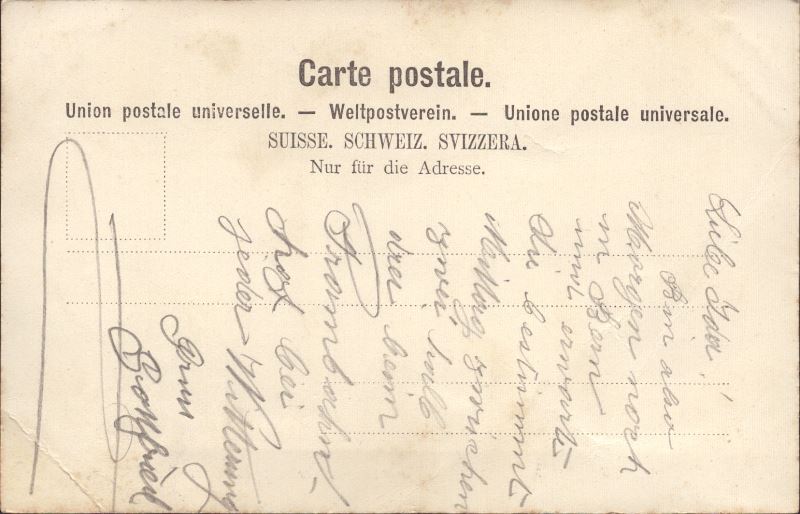 Carte postale.
Union postale universelle. — Weltpostverein. — Unione postale universale.
SUISSE. SCHWEIZ. SVIZZERA.
Nur für die Adresse.
Liebe Ida!
Bin also
Morgen noch
in Bern
und erwarte
die bestimmt
Mittag zwischen
zwei halb
drei beim
Trambahn-
hof bei
jeder Witterung
Gruss
Gottfried